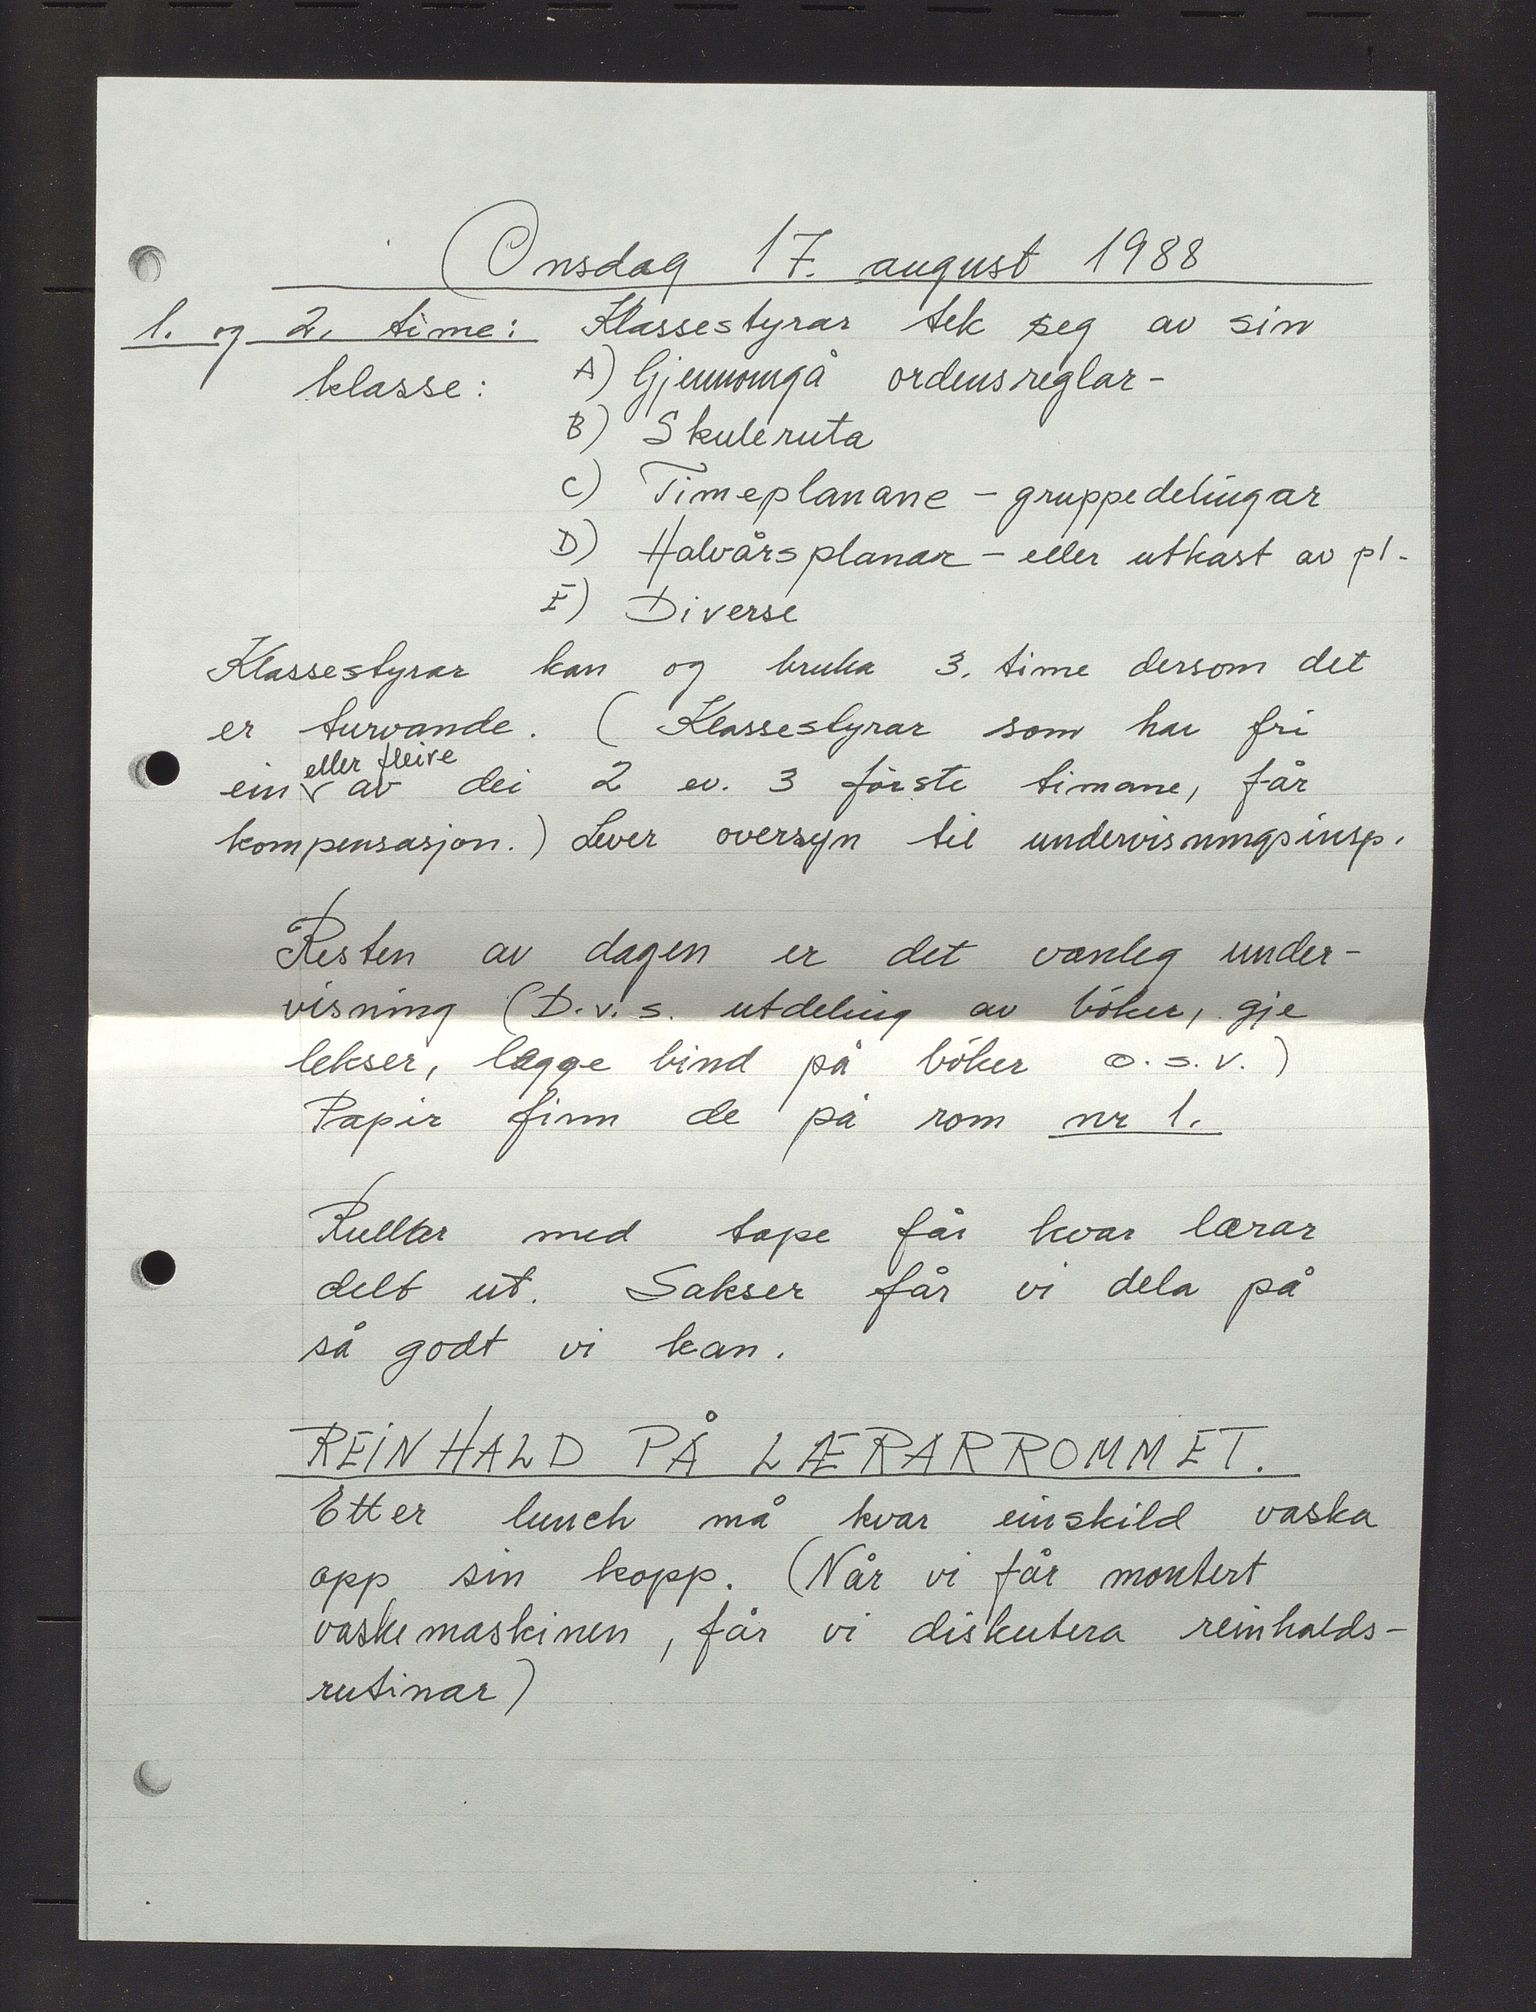 Onsdag 17. august 1988
1. og 2. time: Klassestyrar tek seg av sin
klasse: A) Gjennomgå ordensreglar-
B) Skuleruta
C) Timeplanane - gruppedelingar
D) Halvårsplanar - eller utkast av pl.
E) Diverse
Klassestyrar kan og bruka 3. time dersom det
er turvande. ( Klassestyrar som har fri
eller fleire
ein av dei 2 ev. 3 første timane, får
kompensasjon.) Lever oversyn til undervisningsinsp.
Resten av dagen er det vanleg under-
visning (D.v.s. utdeling av bøker, gje
lekser, legge bind på bøker o.s.v.)
Papir finn de på rom nr 1.
Rullar med tape får kvar lærar
delt ut. Sakser får vi dela på
så godt vi kan.
REINHALD PÅ LÆRARROMMET.
Etter lunch må kvar einskild vaska
opp sin kopp. (Når vi får montert
vaskemaskinen, får vi diskutera reinhalds-
rutinar)